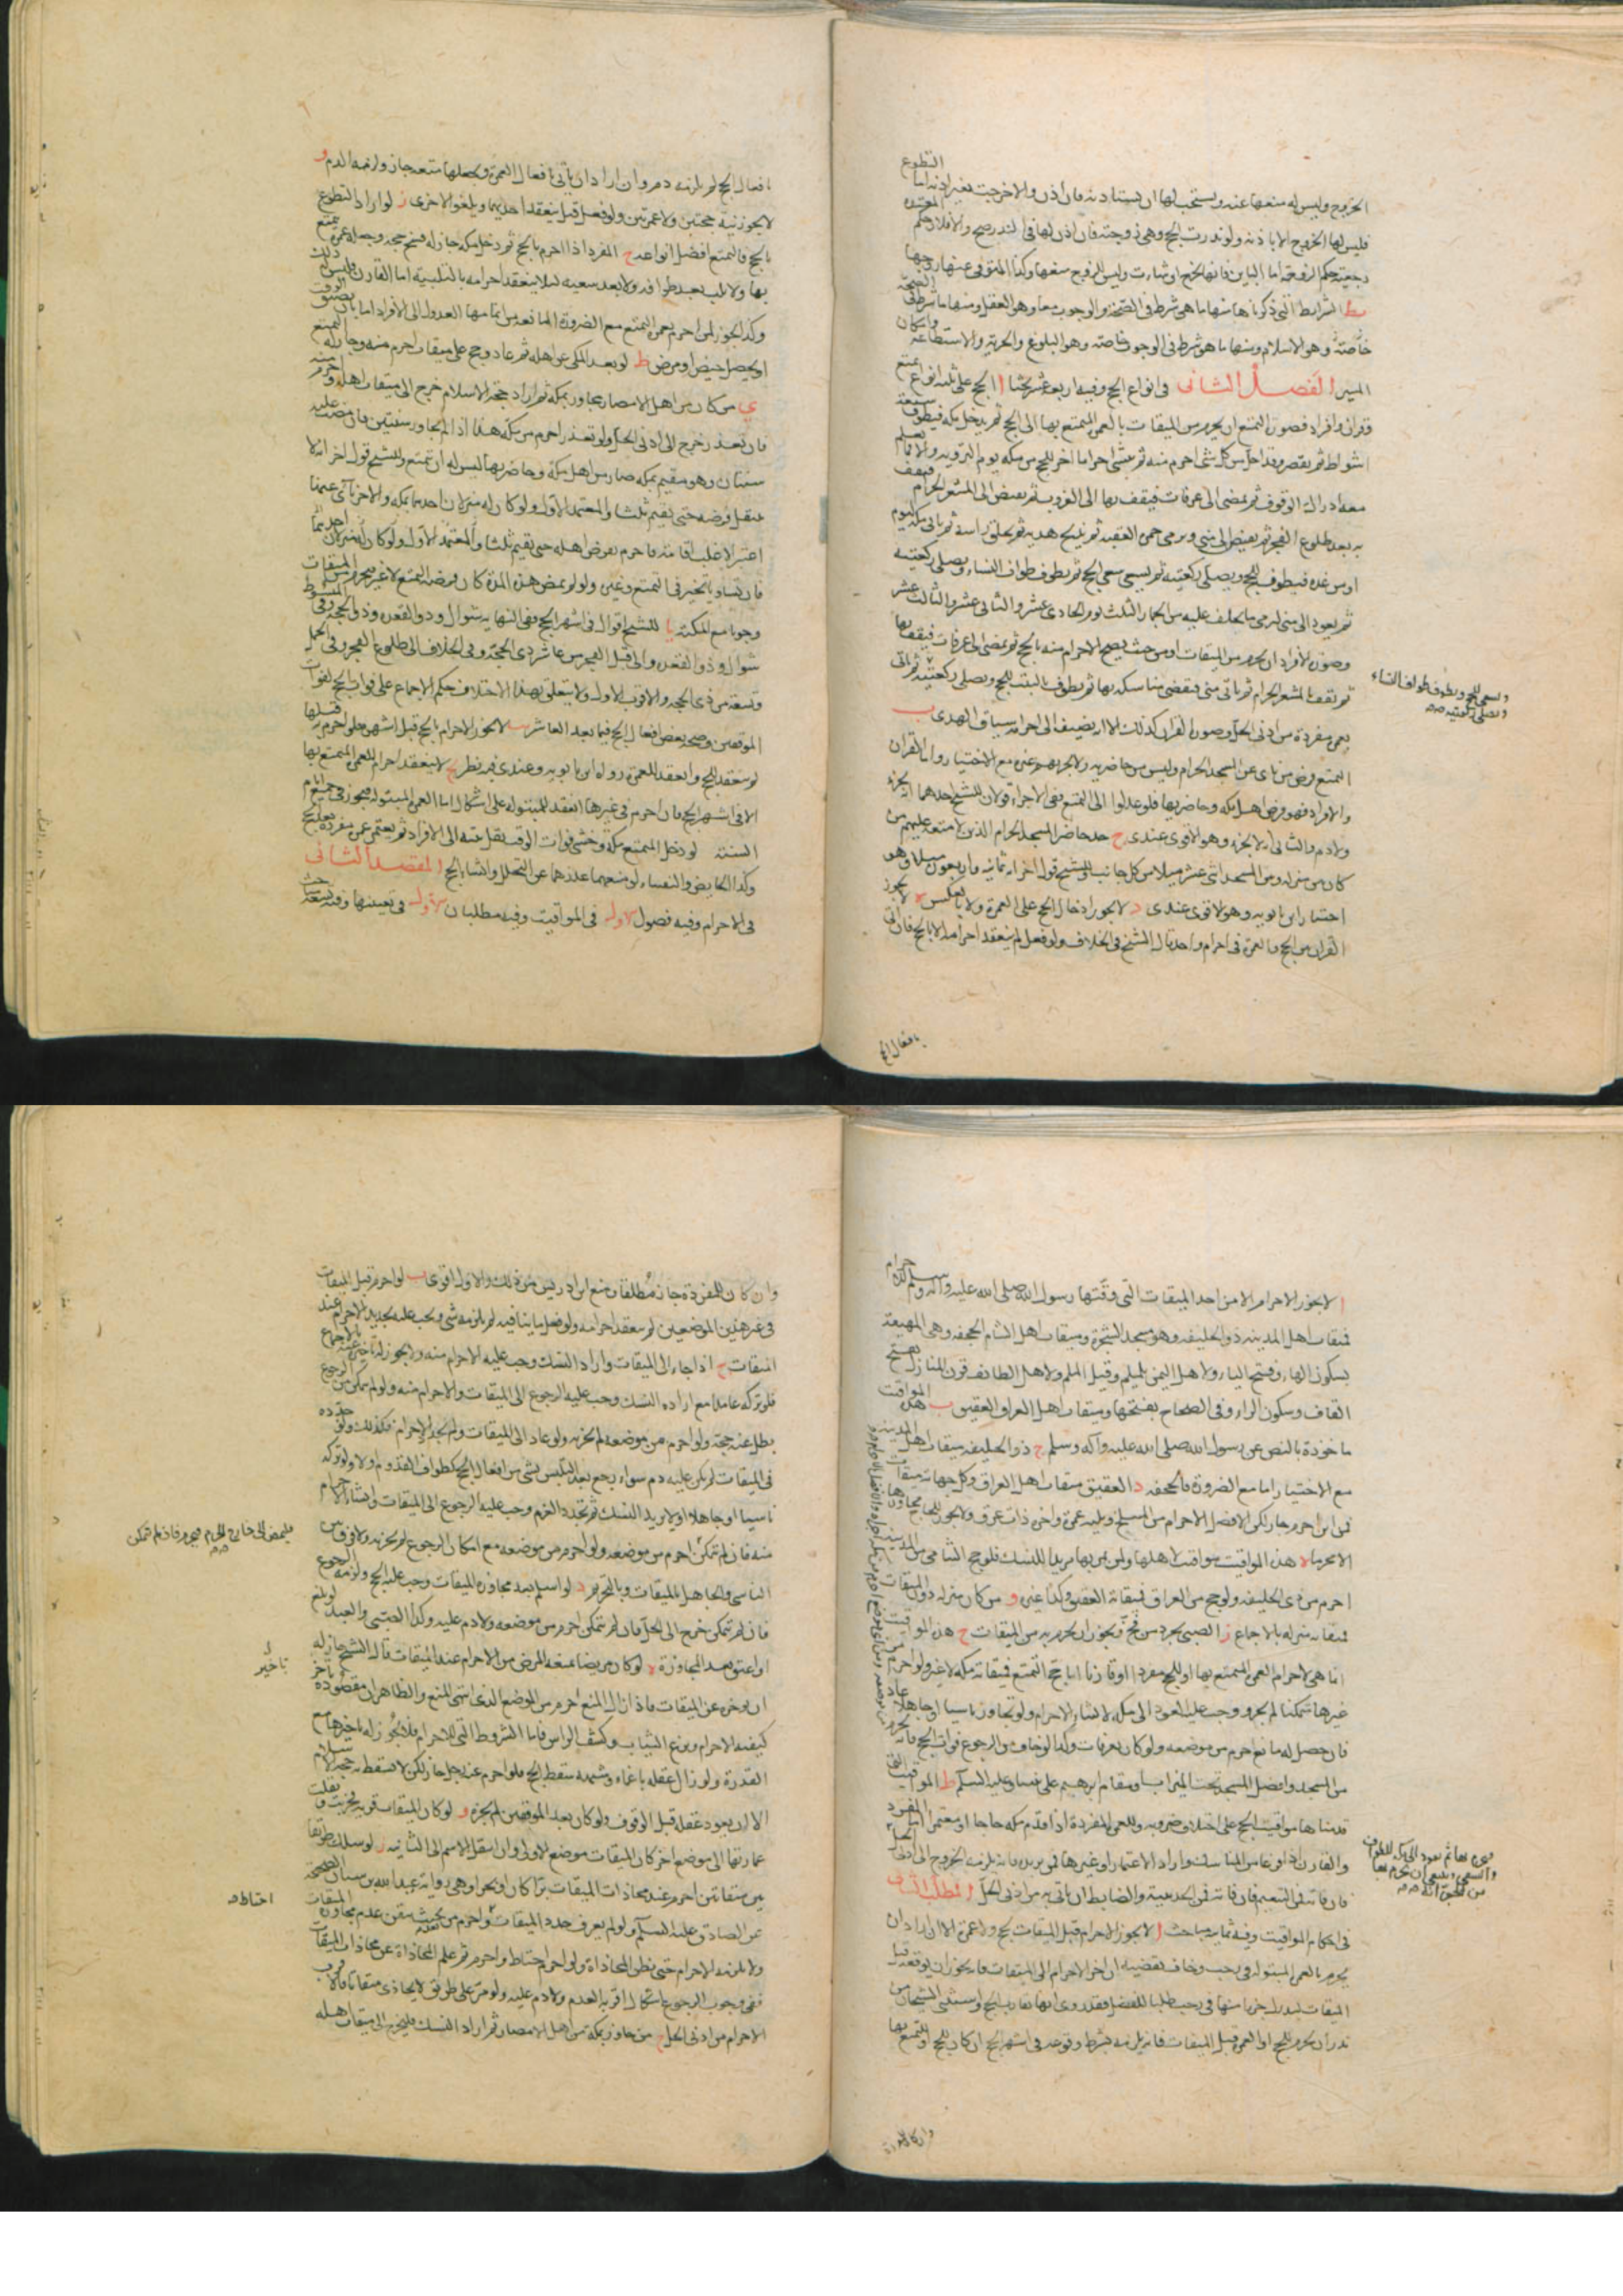 الخروج وليس له منعها عنه ويستحب لها ان يستاذنه فان اذن والا خرجت بغير اذنه اما التطوع
فليس لها الخروج الا باذنه ولو نذرت الحج وهي زوجته فان اذن لها في النذر صح والا فلا وحكم المعتدة
رجعية حكم الزوجة اما البائن فانها تخرج ان شاءت وليس للزوج منعها وكذا المتوفى عنها زوجها
يط الشرايط التي ذكرناها منها ما هي شرط في الصحة والوجوب معا وهو العقل ومنها ما شرط في الصحة
خاصة وهو الاسلام ومنها ما هو شرط في الوجوب خاصة وهو البلوغ والحرية والاستطاعة وامكان
المسير الفصل الثاني في انواع الحج وفيه اربعة عشر بحثا ا الحج على ثلثة انواع تمتع
وقران وافراد فصورة التمتع ان يحرم من الميقات بالعمرة المتمتع بها الى الحج ثم يدخل مكة فيطوف سبعة
اشواط ثم يقصر وقد احل من كل شيء احرم منه ثم ينشي احراما اخر للحج من مكة يوم التروية والا فما يعلم
معه ادراك الوقوف ثم يمضي الى عرفات فيقف بها الى الغروب ثم يفيض الى المشعر الحرام فيقف
به بعد طلوع الفجر ثم يفيض الى منى ويرمي جمرة العقبة ثم يذبح هديه ثم يحلق راسه ثم ياتي مكة ليومه
او من غده فيطوف للحج ويصلي ركعتيه ثم يسعى سعي الحج ثم يطوف طواف النساء ويصلي ركعتيه
ثم يعود الى منى ليرمي ما تخلف عليه من الجمار الثلث يوم الحادي عشر والثاني عشر والثالث عشر
وصورة الافراد ان يحرم من الميقات او من حيث يصح الاحرام منه بالحج ثم يمضي الى عرفات فيقف بها
ثم يقف بالمشعر الحرام ثم ياتي منى فيقضي مناسكه بها ثم يطوف بالبيت للحج ويصلي ركعتيه ثم ياتي
ويسعى للحج ويطوف طواف النساء
ويصلي ركعتيه
بعمرة مفردة من ادنى الحل وصورة القران كذلك الا انه يضيف الى احرامه سياق الهدي ب
التمتع فرض من ناى عن المسجد الحرام وليس من حاضريه ولا يجزيهم غيره مع الاختيار واما القران
والافراد فهو فرض اهل مكة وحاضريها فلو عدلوا الى التمتع ففي الاجزاء قولان للشيخ احدهما انه يجزئ
ولا دم والثاني انه لا يجزيه وهو الاقوى عندي ج حد حاضر المسجد الحرام الذين لا متعة عليهم من
كان بين منزله وبين المسجد اثني عشر ميلا من كل جانب وللشيخ قول اخر انه ثمانية واربعون ميلا وهو
اختيار ابن بابويه وهو الاقوى عندي د لا يجوز ادخال الحج على العمرة ولا بالعكس ه لا يجوز
القران بين الحج والعمرة في احرام واحد قال الشيخ في الخلاف ولو فعل لم ينعقد احرامه الا بالحج فان اتى
بافعال الحج
بافعال الحج لم يلزمه دم وان اراد ان ياتي بافعال العمرة ويجعلها متعة جاز ولزمه الدم و
لا يجوز نية حجتين ولا عمرتين ولو فعل قيل ينعقد احديهما ويلغو الاخرى ز لو اراد التطوع
بالحج فالتمتع افضل انواعه ح المفرد اذا احرم بالحج ثم دخل مكة جاز له فسخ حجه وجعله عمرة يتمتع
بها ولا يلب بعد طوافه ولا بعد سعيه لئلا ينعقد احرامه بالتلبية اما القارن فليس له ذلك
وكذا يجوز لمن احرم بعمرة التمتع مع الضرورة المانعة من اتمامها العدول الى الافراد اما بان يضيق الوقت
او يحصل حيض او مرض ط لو بعد المكي عن اهله ثم عاد وحج على ميقات احرم منه وجاز له التمتع
ي من كان من اهل الامصار فجاور بمكة ثم اراد حجة الاسلام خرج الى ميقات اهله واحرم منه
فان تعذر خرج الى ادنى الحل ولو تعذر احرم من مكة هذا اذا لم يجاور سنتين فان مضت عليه
سنتان وهو مقيم بمكة صار من اهل مكة وحاضريها ليس له ان يتمتع وللشيخ قول اخر انه لا
ينتقل فرضه حتى يقيم ثلثا والمعتمد الاول ولو كان له منزلان احدهما بمكة والاخر ناء عنها
اعتبر الاغلب اقامة فاحرم بفرض اهله
فان تساويا تخير في التمتع وغيره ولو لم يمض هذه المدة كان فرضه التمتع لا غير فيحرم من الميقات
وجوبا مع المكنة يا للشيخ اقوال في اشهر الحج ففي النهاية شوال وذو القعدة وذو الحجة وفي المبسوط
شوال وذو القعدة والى قبل الفجر من عاشر ذي الحجة وفي الخلاف الى طلوع الفجر وفي الجمل
وتسعة من ذي الحجة والاقرب الاول ولا يتعلق بهذا الاختلاف حكم للاجماع على فوات الحج بفوات
الموقفين وصحة بعض افعال الحج فيما بعد العاشر يب لا يجوز الاحرام بالحج قبل اشهره فلو احرم قبلها
لم ينعقد للحج وانعقد للعمرة رواه ابن بابويه وعندي فيه نظر يج لا ينعقد احرام العمرة المتمتع بها
الا في اشهر الحج فان احرم في غيرها انعقد للمبتولة على اشكال اما العمرة المبتولة فيجوز في جميع ايام
السنة لو دخل المتمتع مكة وخشي فوات الوقت نقل نيته الى الافراد ثم يعتمر عمرة مفردة بعد الحج
وكذا الحايض والنفساء لو منعهما عذرهما عن التحلل وانشاء الحج المقصد الثاني
في الاحرام وفيه فصول الاول في المواقيت وفيه مطلبان الاول في تعيينها وفيه تسعة مباحث
ا لا يجوز الاحرام الا من احد الميقات التي وقتها رسول الله صلى الله عليه واله وسلم
فميقات اهل المدينة ذو الحليفة وهو مسجد الشجرة وميقات اهل الشام الجحفة وهي المهيعة
بسكون الهاء وفتح الياء ولاهل اليمن يلملم وقيل الملم ولاهل الطائف قرن المنازل بفتح
القاف وسكون الراء وفي الصحاح بفتحها وميقات اهل العراق العقيق ب هذه المواقيت
ماخوذة بالنص عن رسول الله صلى الله عليه وآله وسلم ج ذو الحليفة ميقات اهل المدينة
مع الاختيار اما مع الضرورة فالجحفة د العقيق ميقات اهل العراق وكل جهاته ميقات
فمن اين احرم جاز لكن الافضل الاحرام من المسلخ ويليه غمرة واخره ذات عرق ولا يجوز للحاج مجاوزتها
الا محرما ه هذه المواقيت مواقيت لاهلها ولمن يمر بها مريدا للنسك فلو حج الشامي من المدينة
احرم من ذي الحليفة ولو حج من العراق فميقاته العقيق وكذا غيره و من كان منزله دون الميقات
فميقاته منزله بالاجماع ز الصبي يجرد من فخ ويجوز ان يحرم به من الميقات ح هذه المواقيت
انما هي لاحرام العمرة المتمتع بها او للحج مفردا او قارنا اما حج التمتع فميقاته مكة لا غير ولو احرم من
غيرها متمكنا لم يجز ووجب عليه العود الى مكة لانشاء الاحرام ولو تجاوز ناسيا او جاهلا عاد
فان حصل له مانع احرم من موضعه ولو كان بعرفات وكذا لو خاف من الرجوع فوات الحج فانه يحرم
من المسجد وافضل المسجد تحت الميزاب او مقام ابرهيم على نبينا وعليه السلم ط المواقيت التي
قدمناها مواقيت الحج على اختلاف ضروبه وللعمرة المفردة اذا قدم مكة حاجا او معتمرا اما المفرد
والقارن اذا فرغا من المناسك واراد الاعتمار او غيرها ممن يريد فانه يلزمه الخروج الى ادنى الحل
فان فاته فمن التنعيم فان فاته فمن الحديبية والضابط ان ياتي به من ادنى الحل المطلب الثاني
في احكام المواقيت وفيه ثمانية مباحث ا لا يجوز الاحرام قبل الميقات بحج ولا عمرة الا ان اراد ان
يحرم بالعمرة المبتولة في رجب وخاف تقضيه ان اخر الاحرام الى الميقات فانه يجوز ان يوقعه قبل
الميقات ليدرك جزءا منها في رجب طلبا للفضل فقد روي انها تقارب الحج واستثنى الشيخان من
نذر ان يحرم للحج او العمرة قبل الميقات فانه يلزمه بشرط وقوعه في اشهر الحج ان كان للحج او للتمتع بها
وان كان للمفردة
وان كان للمفردة جاز مطلقا ومنع ابن ادريس من ذلك والاول اقوى ب لو احرم قبل الميقات
في غير هذين الموضعين لم ينعقد احرامه ولو فعل ما ينافيه لم يلزمه شيء ويجب عليه تجديد الاحرام عند
الميقات ج اذا جاء الى الميقات واراد النسك وجب عليه الاحرام منه ولا يجوز له تاخيره عنه بالاجماع
فلو تركه عامدا مع ارادة النسك وجب عليه الرجوع الى الميقات والاحرام منه ولو لم يتمكن من الرجوع
بطل عنه حجه ولو احرم من موضعه لم يجزيه ولو عاد الى الميقات ولم يجدد الاحرام فكذلك ولو جدده
في الميقات لم يكن عليه دم سواء رجع بعد التلبس بشي من افعال الحج كطواف القدوم او لا ولو تركه
ناسيا او جاهلا او لا يريد النسك ثم تجدد العزم وجب عليه الرجوع الى الميقات وانشاء الاحرام
منه فان لم يتمكن احرم من موضعه ولو احرم من موضعه مع امكان الرجوع لم يجزيه ولا فرق بين
فليمض الى خارج الحرم فيحرم فان لم يتمكن
الناسي والجاهل بالميقات وبالتحريم د لو اسلم بعد مجاوزة الميقات وجب عليه الحج ولزمه الرجوع
فان لم يتمكن خرج الى الحل فان لم يتمكن احرم من موضعه ولا دم عليه وكذا الصبي والعبد لو بلغ
او اعتق بعد المجاوزة ه لو كان مريضا يمنعه المرض من الاحرام عند الميقات قال الشيخ جاز له
تاخير
ان يوخره عن الميقات فاذا زال المنع احرم من الموضع الذي انتهى المنع والظاهر ان مقصوده تاخر
كيفية الاحرام من نزع الثياب وكشف الراس فاما الشروط التي للاحرام فلا يجوز له تاخيرها مع
القدرة ولو زال عقله باغماء وشبهه سقط الحج فلو احرم عنه رجل جاز لكن لا تسقط به حجة الاسلام
الا ان يعود عقله قبل الوقوف ولو كان بعد الموقفين لم يجزه و لو كان الميقات قرية فخربت ونقلت
عمارتها الى موضع اخر كان الميقات موضع الاولى وان انتقل الاسم الى الثانية ز لو سلك طريقا
بين ميقاتين احرم عند محاذات الميقات برا كان او بحرا وهي رواية عبد الله بن سنان الصحيحة
احتاط
عن الصادق عليه السلم ولو لم يعرف حدد الميقات واحرم من حيث يتيقن عدم مجاوزة الميقات
ولا يلزمه الاحرام حتى يظن المحاذاة ولو احرم احتياط واحرم ثم علم المحاذاة عن محاذات الميقات
ففي وجوب الرجوع اشكال اقربه العدم ولا دم عليه ولو مر على طريق لا يحاذي ميقاتا فالاقرب
الاحرام من ادنى الحل ح من جاور بمكة من اهل الامصار ثم اراد النسك فليخرج الى ميقات اهله